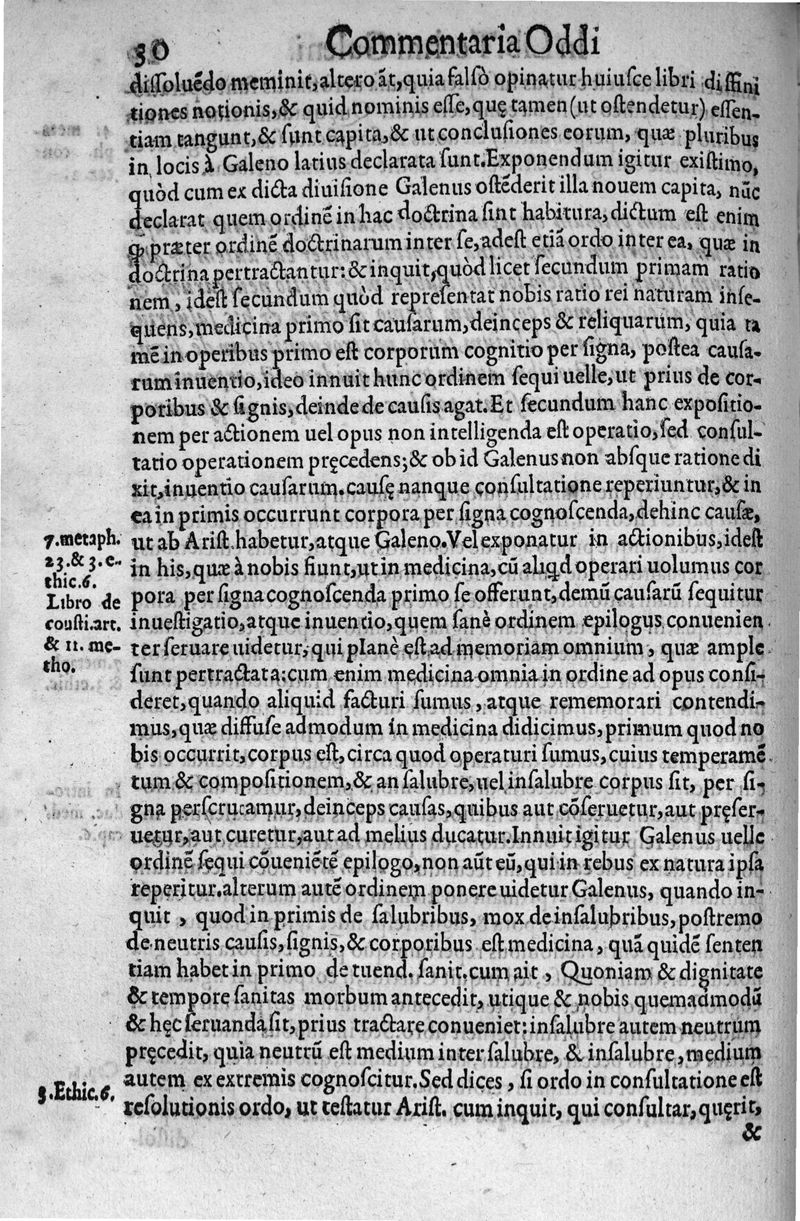 30 Commentaria Oddi
dissoluēdo meminit,altero āt,quia falsò opinatur huiusce libri diffini
tiones notionis,& quid nominis esse,quę tamen (ut ostendetur) essen-
tiam tangunt,& sunt capita,& ut conclusiones eorum, quæ pluribus
in locis à Galeno latius declarata sunt.Exponendum igitur existimo,
quòd cum ex dicta diuisione Galenus ostēderit illa nouem capita, nūc
declarat quem ordinē in hac doctrina sint habitura,dictum est enim
ꝙ præter ordinē doctrinarum inter se,adest etiā ordo inter ea, quæ in
doctrina pertractantur:& inquit,quòd licet secundum primam ratio
nem, idest secundum quòd representat nobis ratio rei naturam inse-
quens,medicina primo sit causarum,deinceps & reliquarum, quia ta
mē in operibus primo est corporum cognitio per signa, postea causa-
rum inuentio,ideo innuit hunc ordinem sequi uelle,ut prius de cor-
poribus & signis,deinde de causis agat.Et secundum hanc expositio-
nem per actionem uel opus non intelligenda est operatio,sed consul-
tatio operationem pręcedens;& ob id Galenus non absque ratione di
xit,inuentio causarum.causę nanque consultatione reperiuntur,& in
ea in primis occurrunt corpora per signa cognoscenda,dehinc causæ,
7.metaph. ut ab Arist.habetur,atque Galeno.Vel exponatur in actionibus,idest
23.& 3.e- in his,quæ à nobis fiunt,ut in medicina,cū aliqd operari uolumus cor
thic.6. pora per signa cognoscenda primo se offerunt,demū causarū sequitur
Libro de inuestigatio,atque inuentio,quem sanè ordinem epilogus conuenien
consti.art. ter seruare uidetur,qui planè est ad memoriam omnium, quæ ample
& 11. me- sunt pertractata:cum enim medicina omnia in ordine ad opus consi-
tho. deret,quando aliquid facturi sumus, atque rememorari contendi-
mus,quæ diffuse admodum in medicina didicimus,primum quod no
bis occurrit,corpus est,circa quod operaturi sumus,cuius temperamē
tum & compositionem,& an salubre,uel insalubre corpus sit, per si-
gna perscrutamur,deinceps causas,quibus aut cōseruetur,aut pręser-
uetur,aut curetur,aut ad melius ducatur.Innuit igitur Galenus uelle
ordinē sequi cōueniētē epilogo,non aūt eū,qui in rebus ex natura ipsa
reperitur.alterum autē ordinem ponere uidetur Galenus, quando in-
quit, quod in primis de salubribus, mox de insalubribus,postremo
de neutris causis,signis,& corporibus est medicina, quā quidē senten
tiam habet in primo de tuend. sanit.cum ait, Quoniam & dignitate
& tempore sanitas morbum antecedit, utique & nobis quemadmodū
& hęc seruanda sit,prius tractare conueniet:insalubre autem neutrum
pręcedit, quia neutrū est medium inter salubre, & insalubre,medium
autem ex extremis cognoscitur.Sed dices, si ordo in consultatione est
3.Ethic.6. resolutionis ordo, ut testatur Arist. cum inquit, qui consultar,quęrit,
&